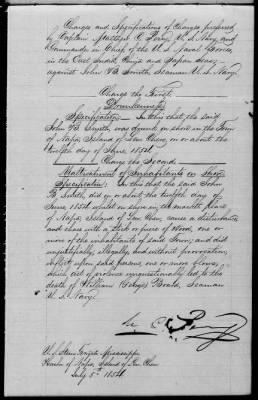 Charges and Specifications of Charges preferred
by Captain Matthew C. Perry U.S. Navy, and
Commander in Chief of the U.S. Naval Forces
in the East India, China and Japan Seas,
against John B. Smith, Seaman U.S. Navy.
Charge the First.
Drunkenness.
Specification. In this; that the said
John B. Smith, was drunk on shore in the Town
of Napa, Island of Lew Chew, on or about the
twelfth day of June, 1854.
Charge the Second
Maltreatment of Inhabitants on Shore
Specification: In this, that the said John
B. Smith, did on or about the twelfth day of
June 1854 whilst on shore in the market place
of Napa, Island of Lew Chew, cause a disturbance
and chase with a stick or piece of Wood, one or
more of the inhabitants of said Town; and did
unjustifiably, illegally, and without provocation,
inflict upon said persons one or more blows,
which act of violence unquestionably led to the
death of William Board, Seaman
U.S. Navy.
M. C. Perry
U.S. Steam Frigate Mississippi
Harbor of Napa, Island of Lew Chew
July 5th 1854